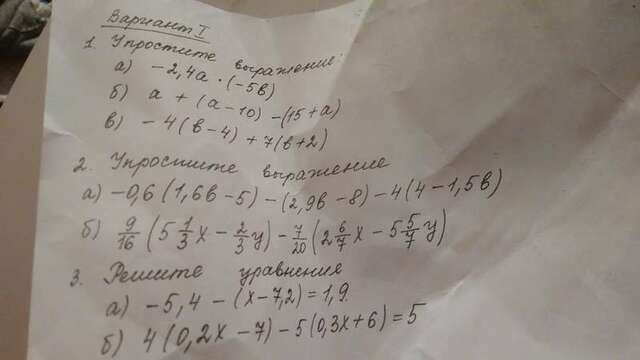 Вариант I
1. Упростите выражение:
а) -2,4а · (-5в)
б) а + (а-10) - (15+а)
в) -4(в-4) + 7(в+2)
2. Упростите выражение
а) -0,6(1,6в-5) - (2,9в-8) - 4(4-1,5в)
б) 9/16 (5 1/3 х - 2/3 у) - 7/20 (2 6/7 х - 5 5/7 у)
3. Решите уравнения
а) -5,4 - (х-7,2) = 1,9.
б) 4(0,2х-7) - 5(0,3х+6) = 5